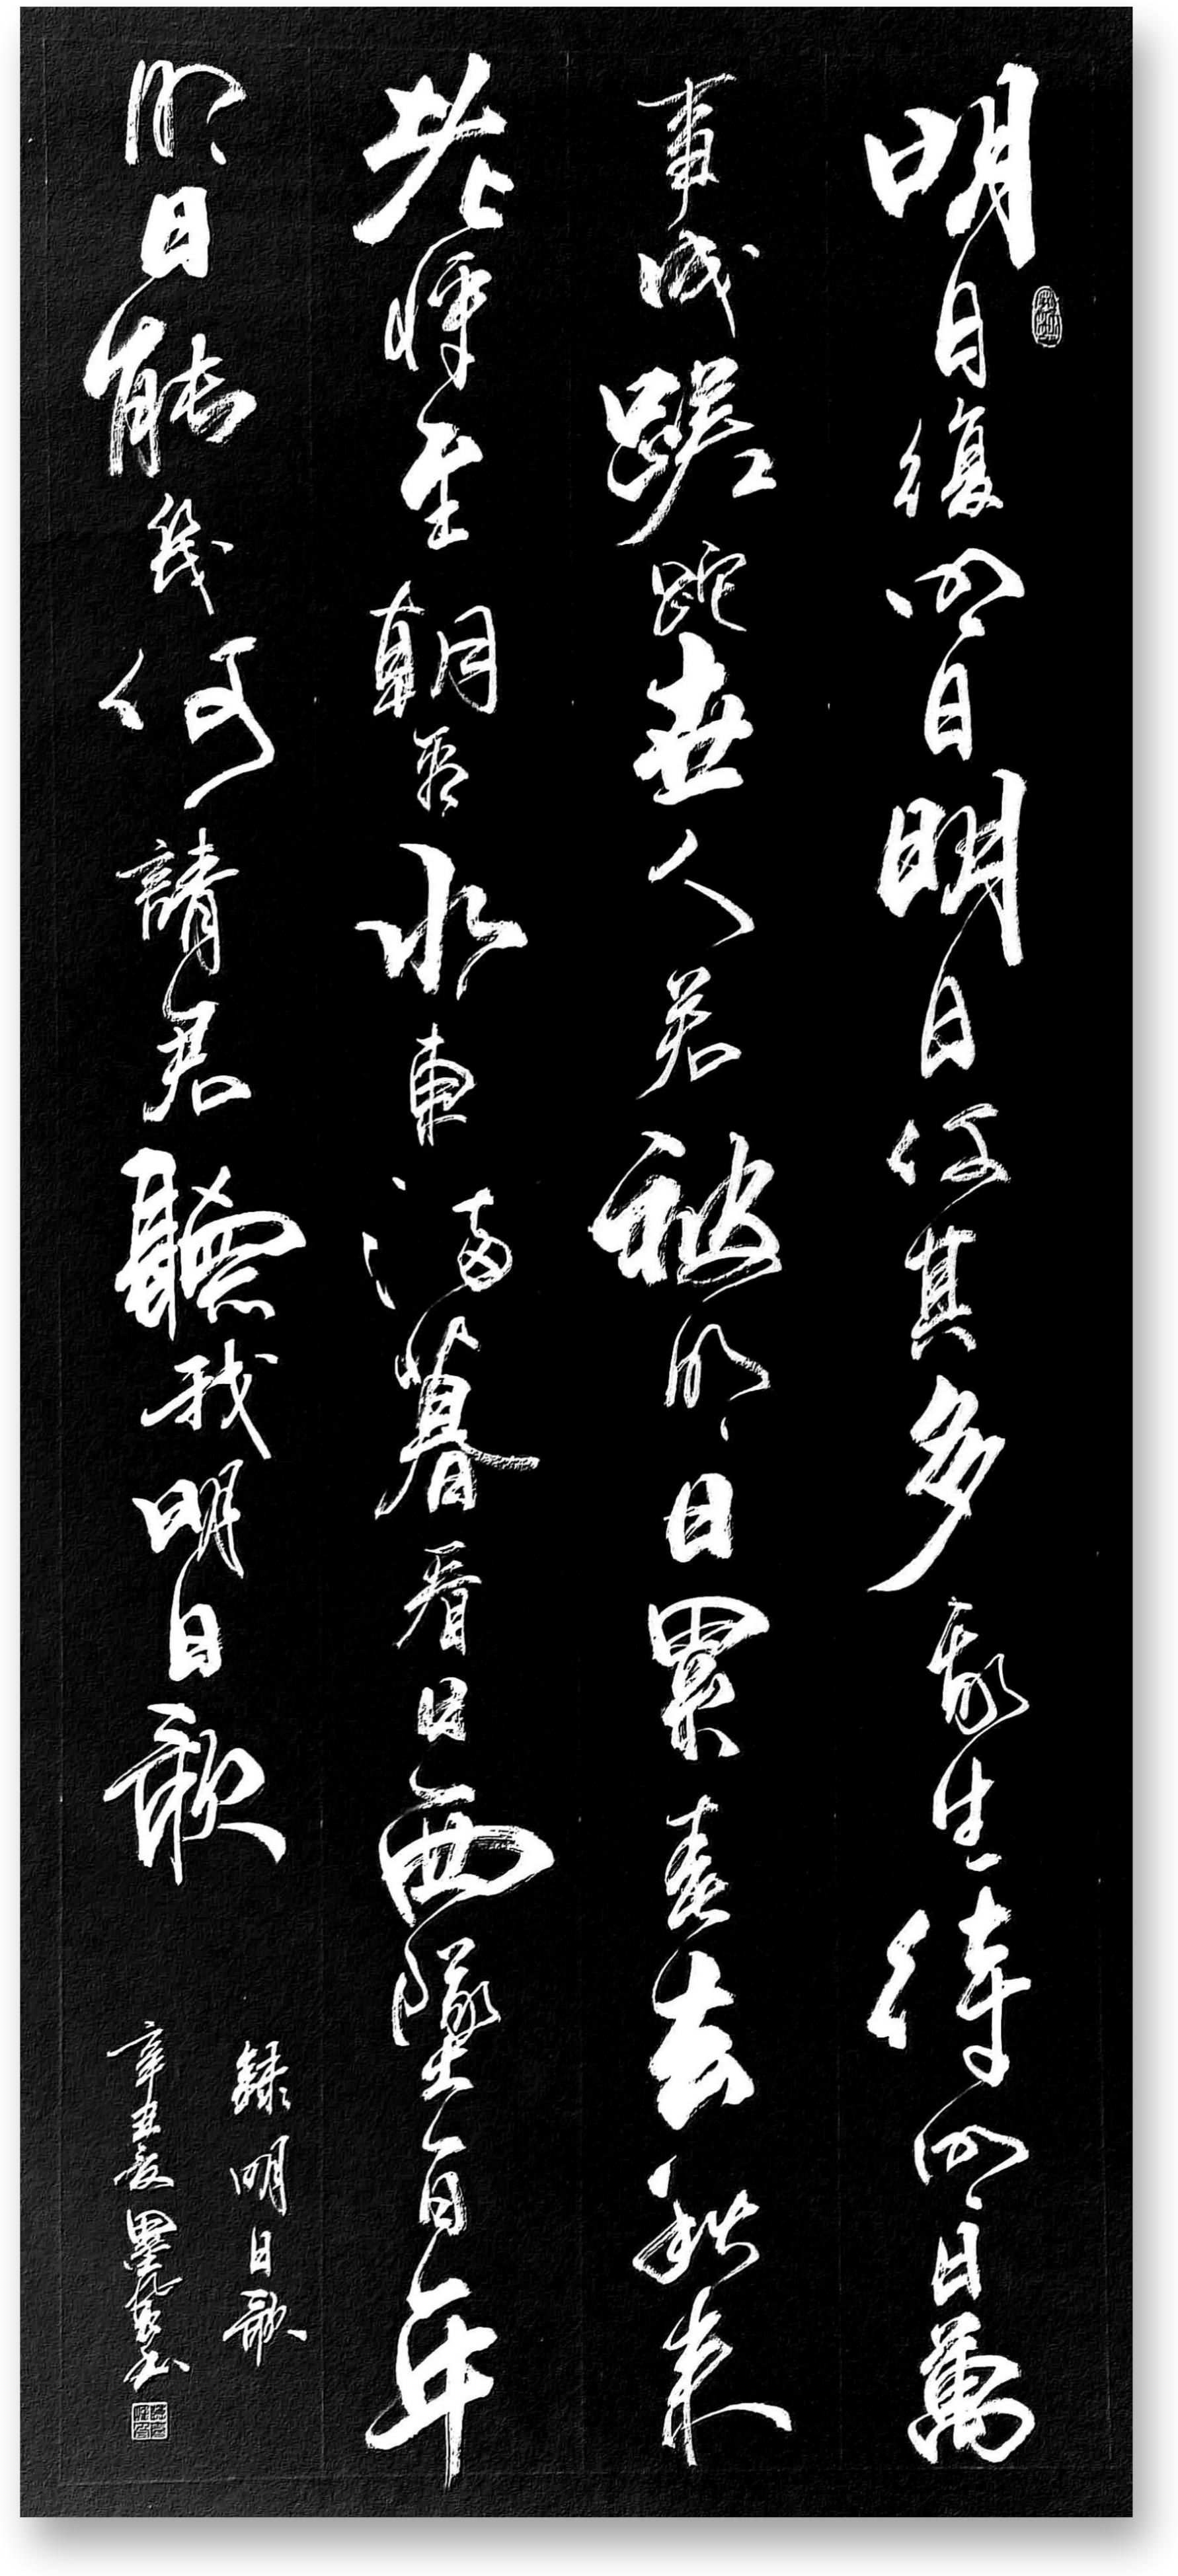 明日復明日明日何其多我生待明日萬
事成蹉跎世人若被明日累春去秋来
老將至朝看水東流暮看日西墜百年
明日能幾何請君聽我明日歌
錄明日歌
辛丑夏墨